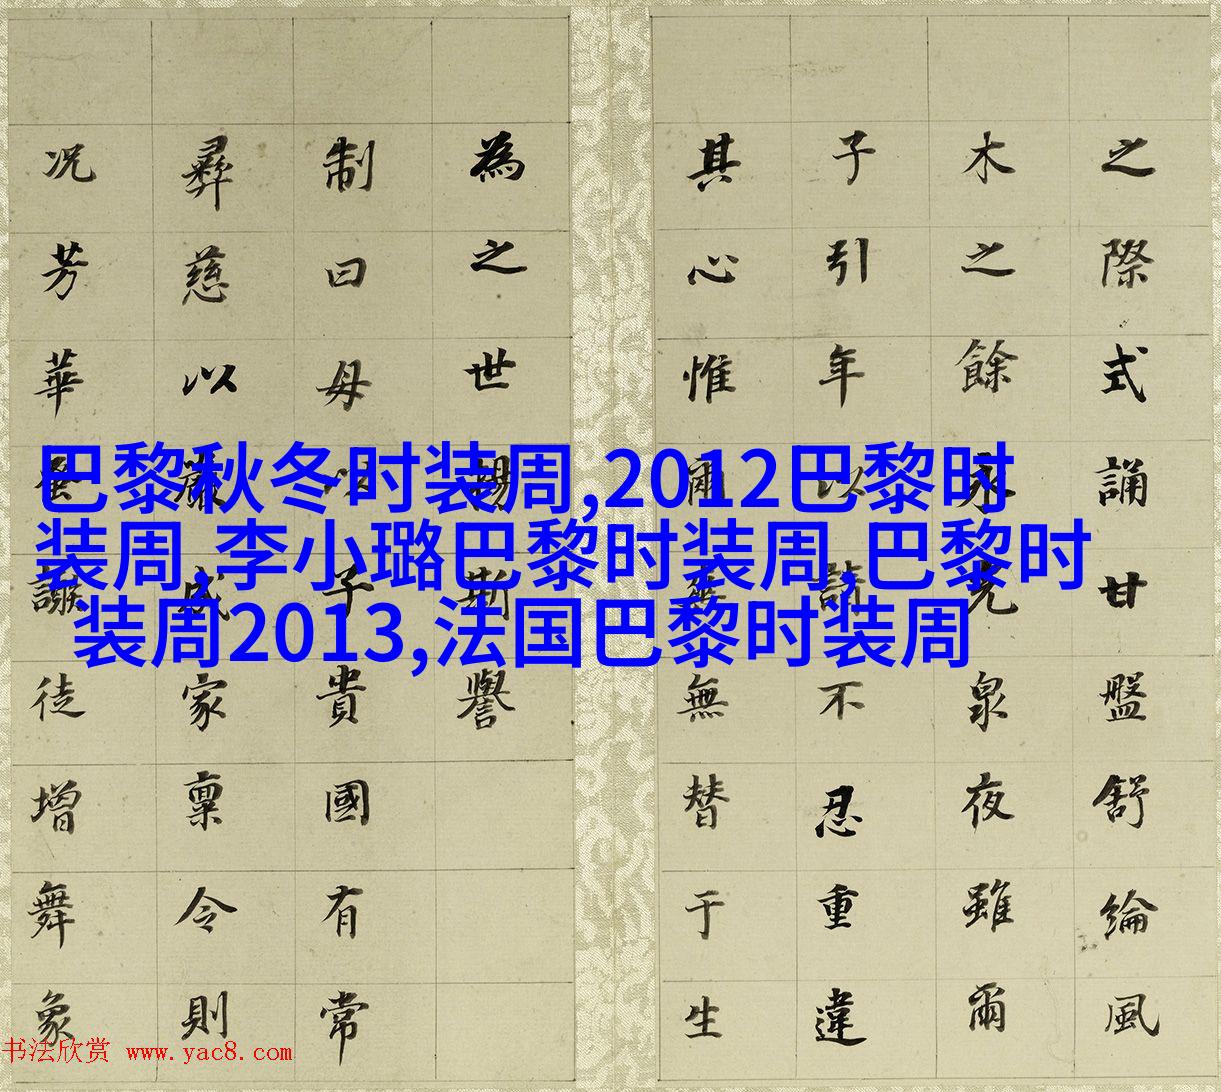 巴黎秋冬时装周,2012巴黎时
装周,李小璐巴黎时装周,巴黎时
装周2013,法国巴黎时装周
之際式誦甘盤舒綸風
木之餘永克泉夜雖爾
子引年以請不忍重違
其心惟爾無替于生
為之世錫斯譽
制曰母以子貴國有常
彝慈以嚴成家稟令則
况芳華徒增舞象
书法欣赏 www.yac8.com